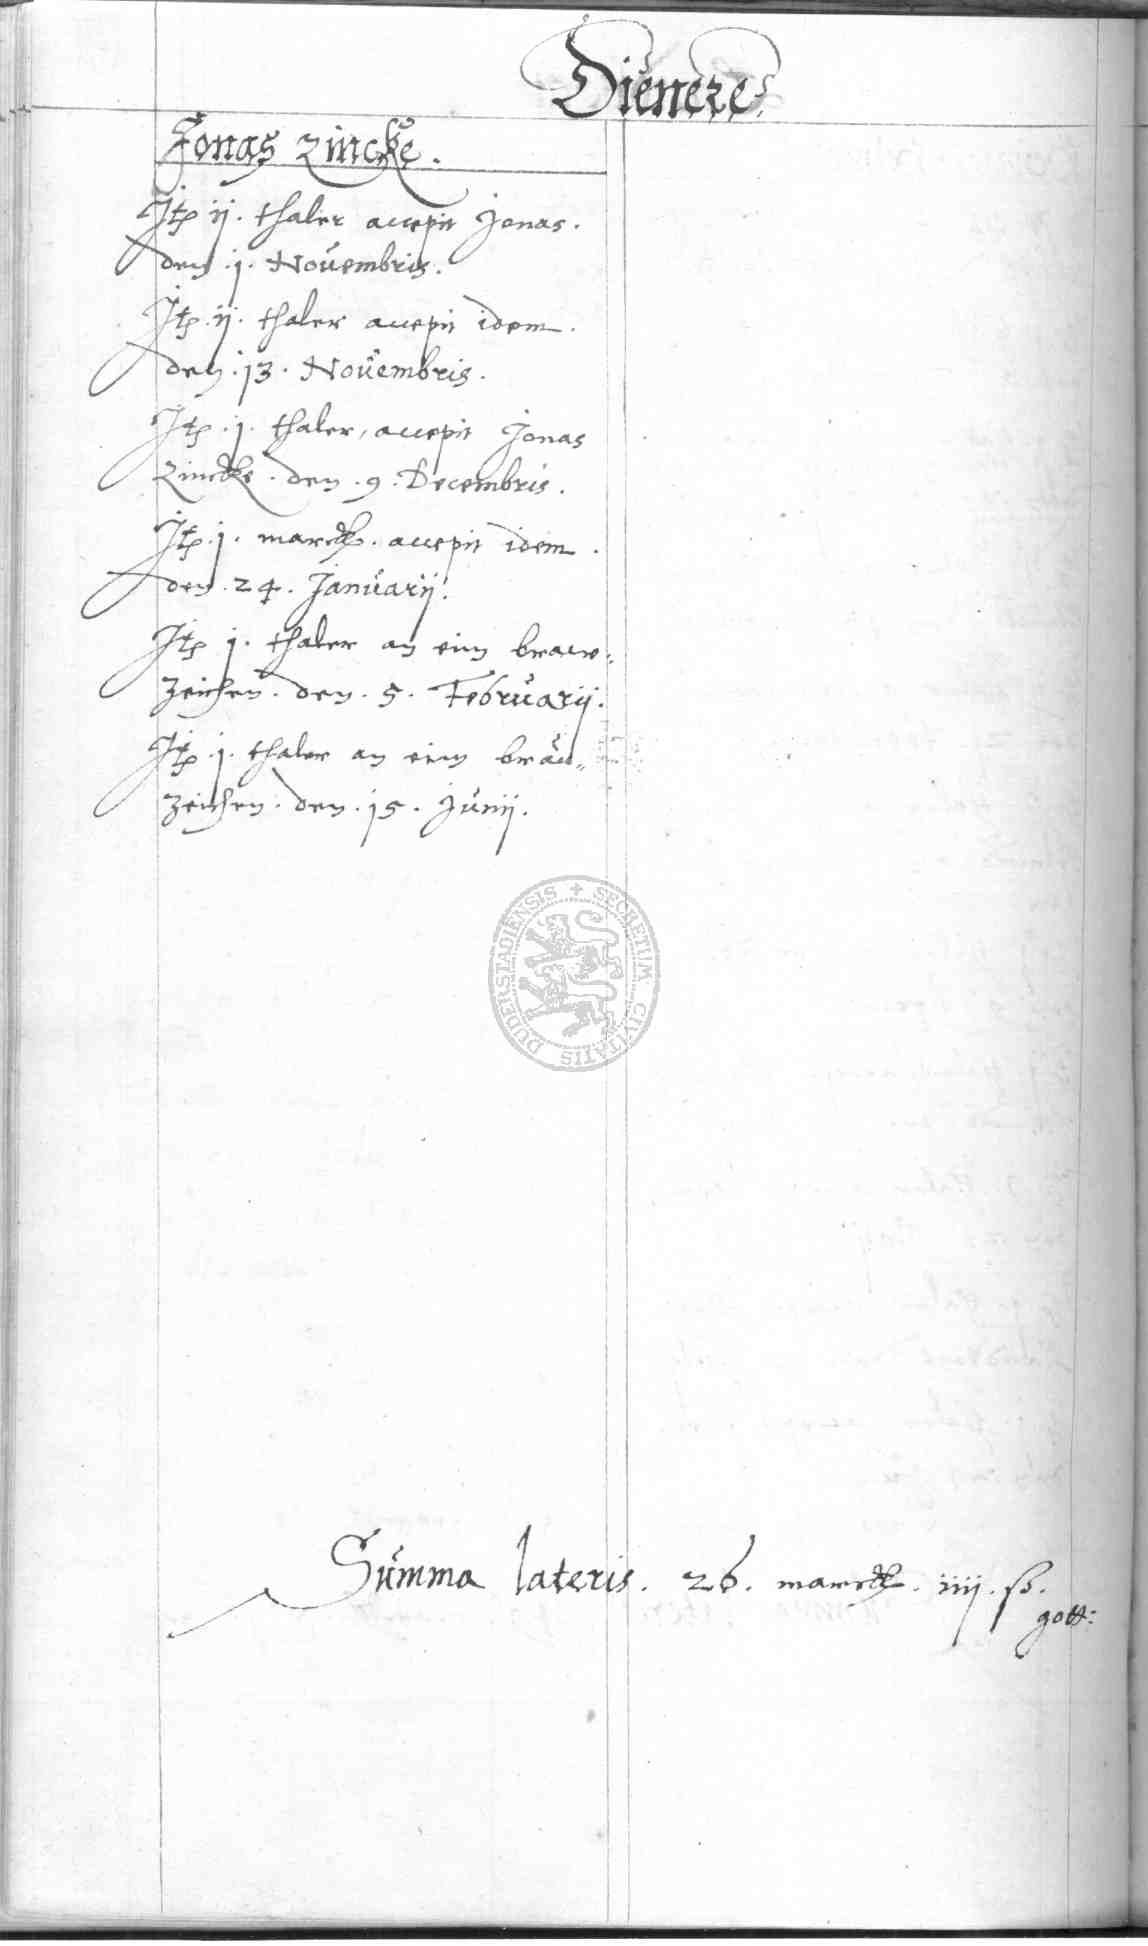 Dienere.
Jonas Zincke.
Itp ij. thaler accepit Jonas.
den .j. Novembris.
Itp .ij. thaler accepit idem.
den .13. Novembris.
Itp .j. thaler, accepit Jonas
Zincke. den .9. Decembris.
Itp .j. marck. accepit idem.
den .24. Januarij.
Itp j. thaler an eim braw-
zeichen. den .5. Februarij.
Itp .j. thaler an eim brau-
zeichen. den .15. Junij.
SECRETUM CIVITATIS DUDERSTADIENSIS
Summa lateris. 26. marck. iiij. ß.
gott: